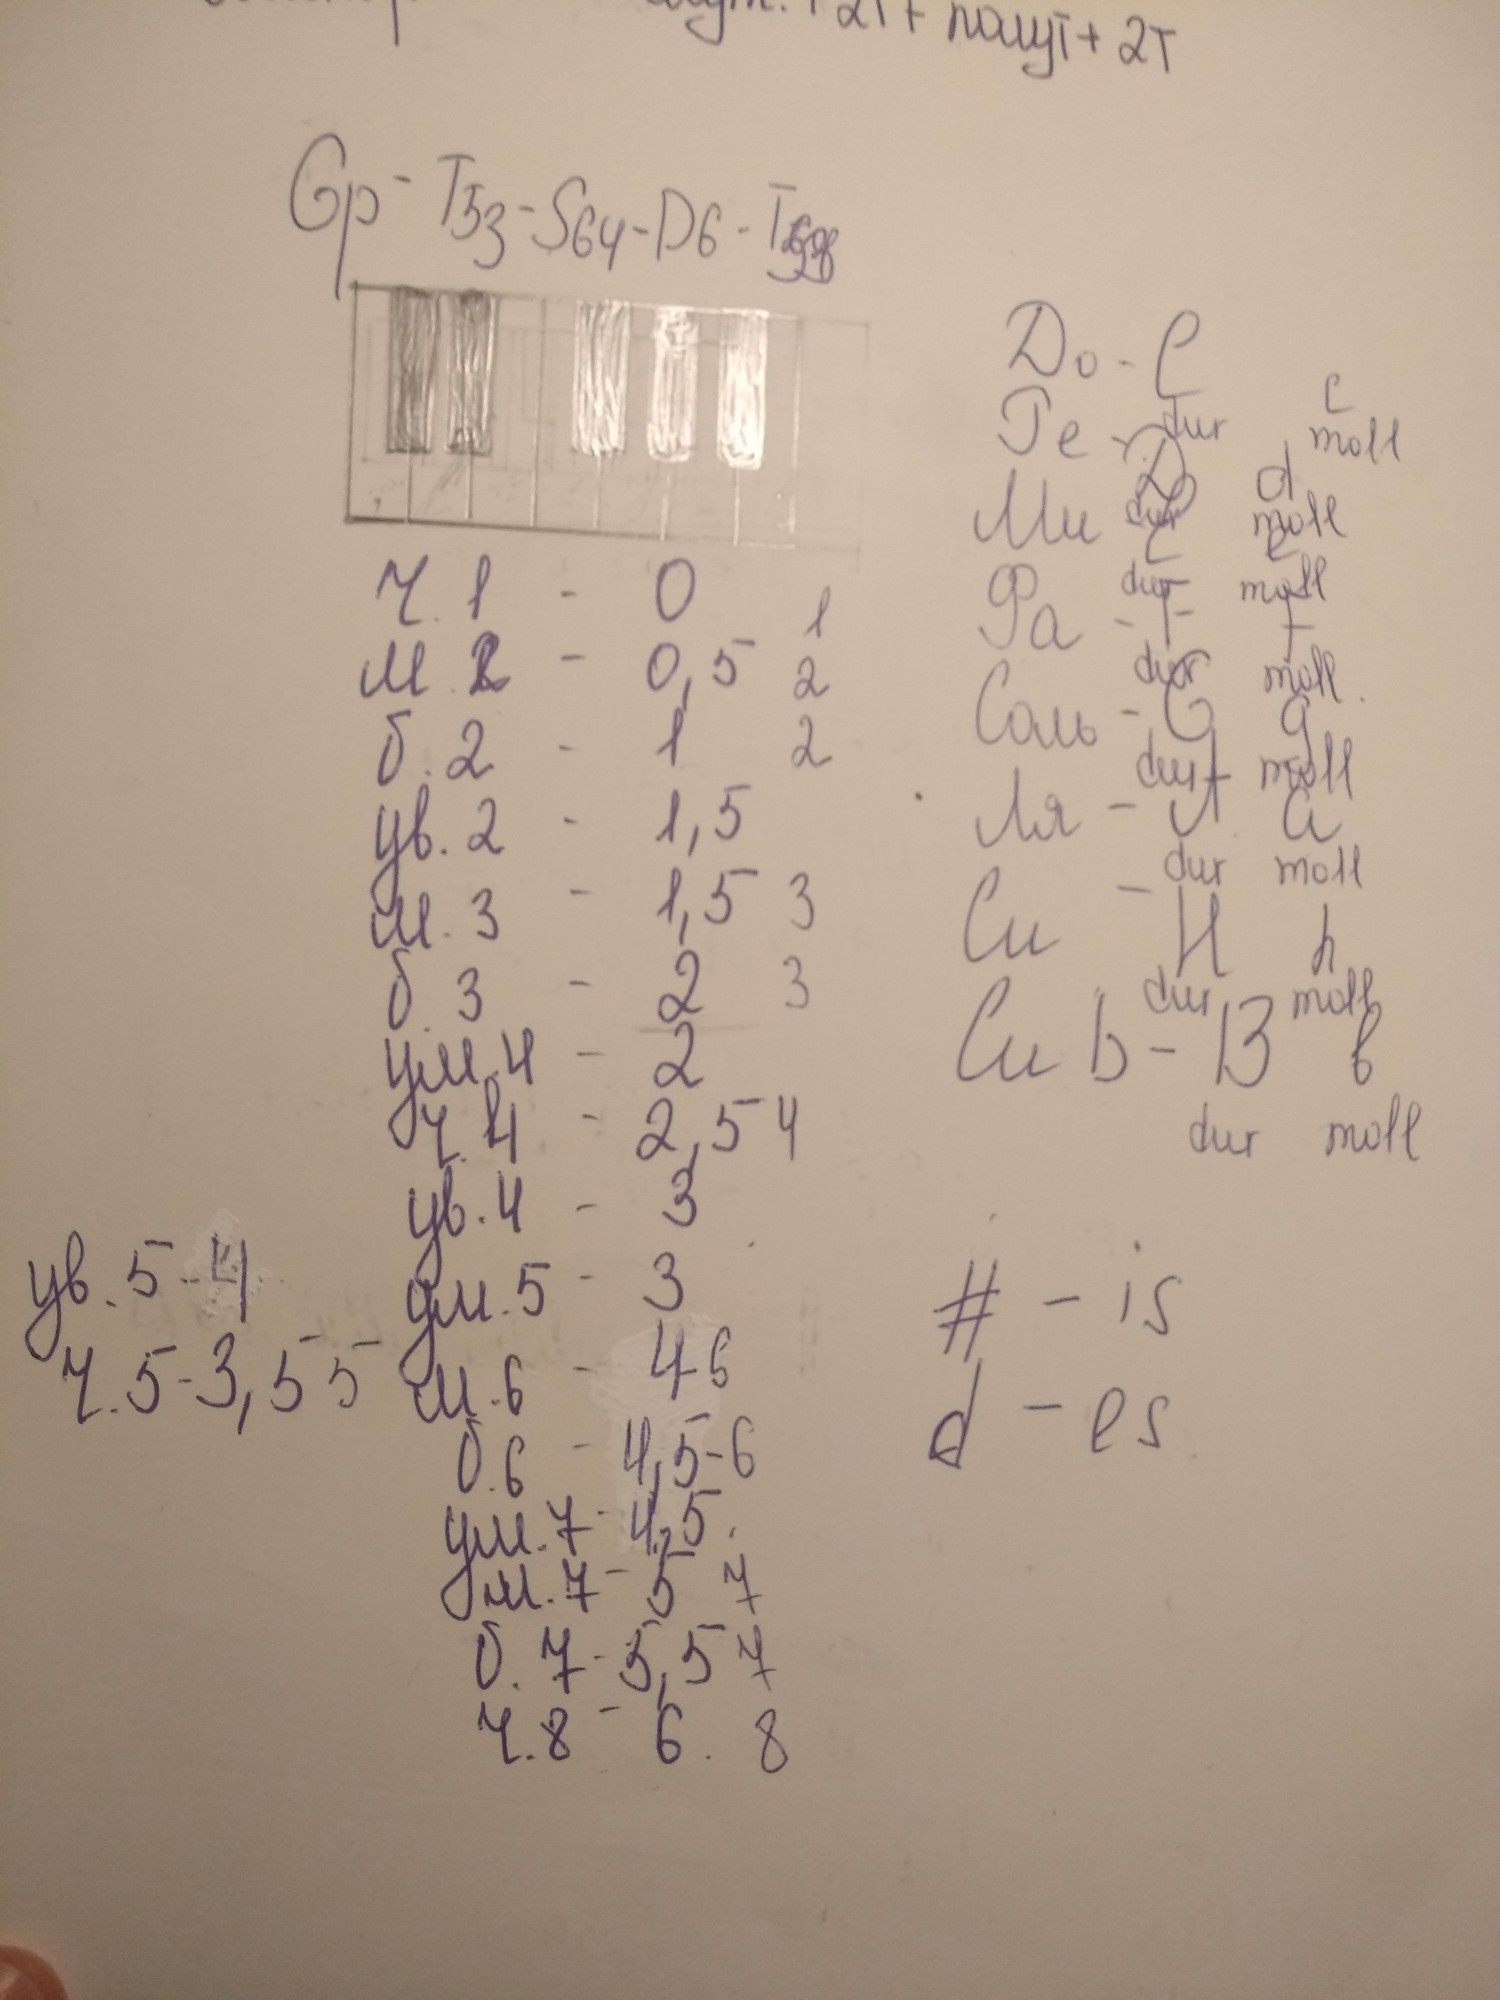 + 2т + полут + 2т
Gр - Т53 - S64 - D6 - Т
До - C c
dur moll
Ре - D d
dur moll
Ми E e
dur moll
Фа - F f
dur moll
Соль - G g
dur moll
Ля - A a
dur moll
Си - H h
dur moll
Си b - B b
dur moll
ч. 1 - 0 1
м. 2 - 0,5 2
б. 2 - 1 2
ув. 2 - 1,5
м. 3 - 1,5 3
б. 3 - 2 3
ум. 4 - 2
ч. 4 - 2,5 4
ув. 4 - 3
ум. 5 - 3
ув. 5 - 4
ч. 5 - 3,5 5
м. 6 - 4 6
б. 6 - 4,5 - 6
ум. 7 - 4,5.
м. 7 - 5 7
б. 7 - 5,5 7
ч. 8 - 6. 8
# - is
d - es